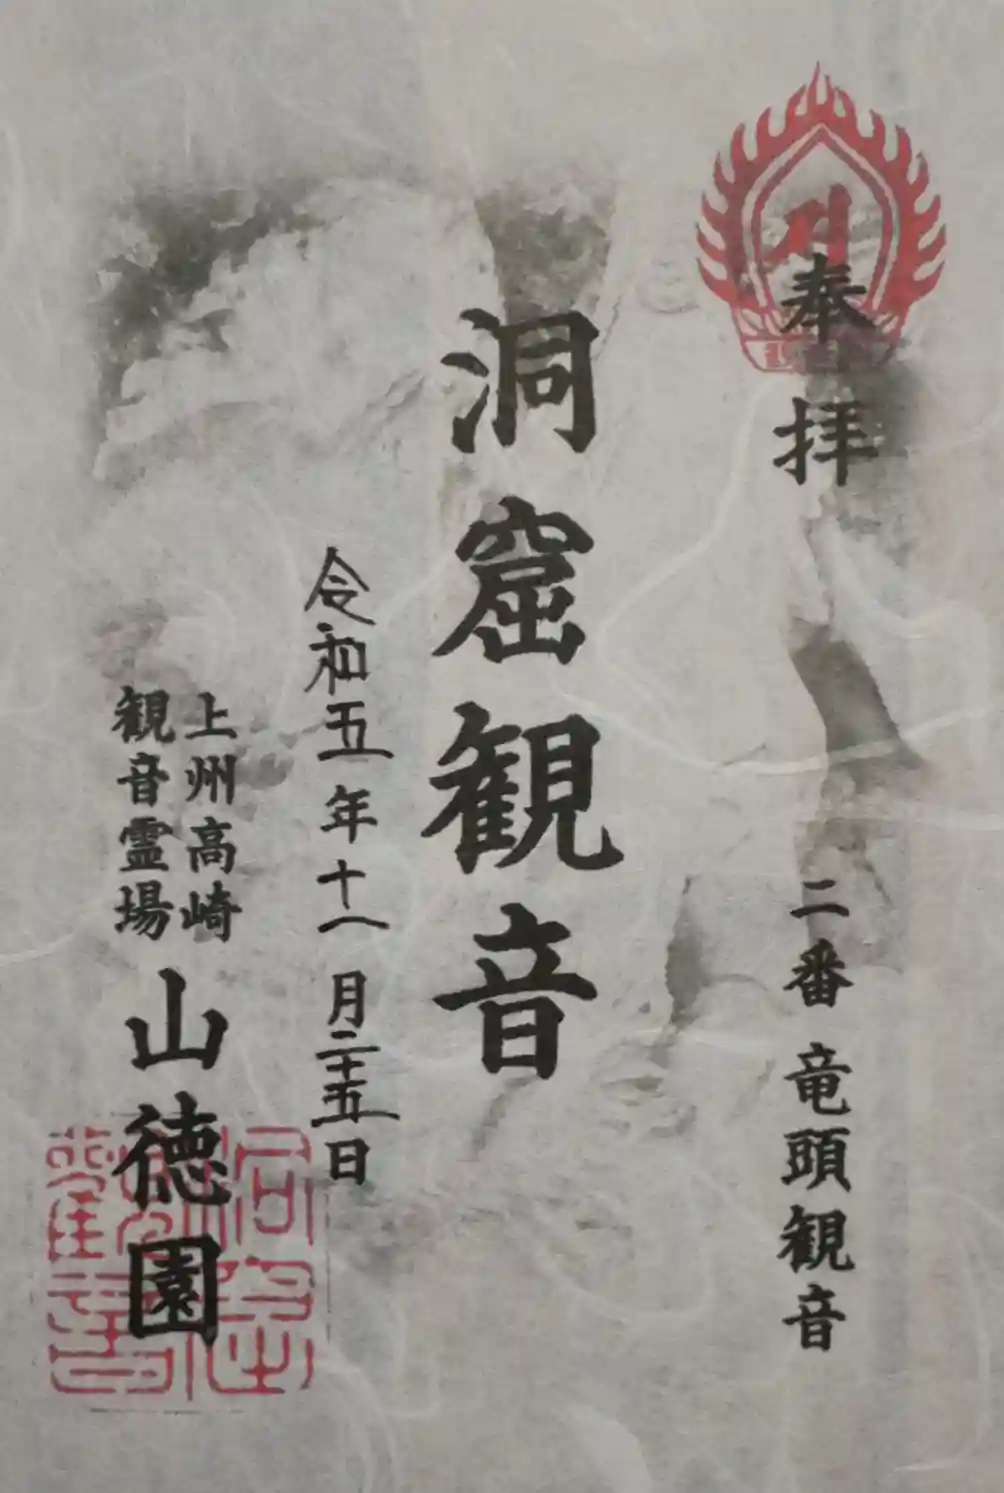 奉拝
二番 竜頭観音
洞窟観音
令和五年十一月二十五日
上州高崎
観音霊場
山徳園
洞窟観音